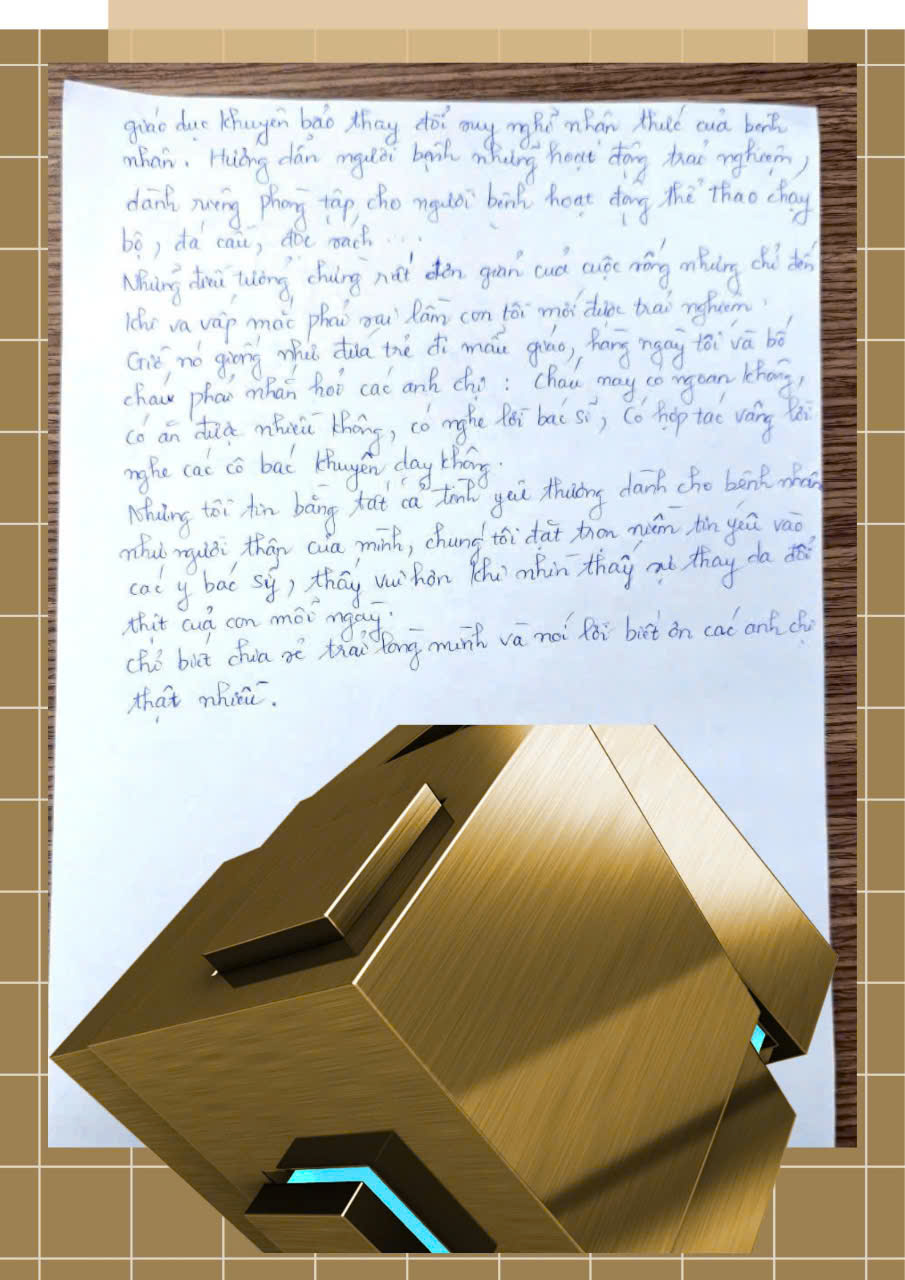 giáo dục khuyên bảo thay đổi suy nghĩ nhận thức của bệnh
nhân. Hướng dẫn người bệnh những hoạt động trải nghiệm,
dành riêng phòng tập cho người bệnh hoạt động thể thao chạy
bộ, đá cầu, đọc sách ...
Những điều tưởng chừng rất đơn giản của cuộc sống nhưng chỉ đến
khi va vấp mắc phải sai lầm con tôi mới được trải nghiệm.
Giờ nó giống như đứa trẻ đi mẫu giáo, hàng ngày tôi và bố
cháu phải nhắn hỏi các anh chị: Cháu nay có ngoan không,
có ăn được nhiều không, có nghe lời bác sĩ, có hợp tác vâng lời
nghe các cô bác khuyên dạy không.
Nhưng tôi tin bằng tất cả tình yêu thương dành cho bệnh nhân
như người thân của mình, chúng tôi đặt trọn niềm tin yêu vào
các y bác sỹ, thấy vui hơn khi nhìn thấy sự thay da đổi
thịt của con mỗi ngày.
Chỉ biết chia sẻ trải lòng mình và nói lời biết ơn các anh chị
thật nhiều.